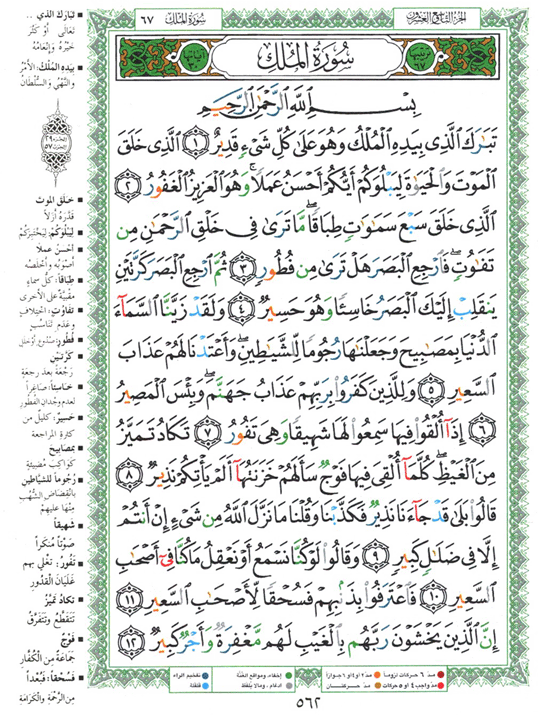 الجزء التاسع والعشرون
سورة الملك ٦٧
سُورَةُ المُلْكِ
بِسْمِ اللَّهِ الرَّحْمَٰنِ الرَّحِيمِ
تَبَارَكَ الَّذِي بِيَدِهِ الْمُلْكُ وَهُوَ عَلَىٰ كُلِّ شَيْءٍ قَدِيرٌ ١ الَّذِي خَلَقَ
الْمَوْتَ وَالْحَيَاةَ لِيَبْلُوَكُمْ أَيُّكُمْ أَحْسَنُ عَمَلًا ۚ وَهُوَ الْعَزِيزُ الْغَفُورُ ٢
الَّذِي خَلَقَ سَبْعَ سَمَاوَاتٍ طِبَاقًا ۖ مَّا تَرَىٰ فِي خَلْقِ الرَّحْمَٰنِ مِن
تَفَاوُتٍ ۖ فَارْجِعِ الْبَصَرَ هَلْ تَرَىٰ مِن فُطُورٍ ٣ ثُمَّ ارْجِعِ الْبَصَرَ كَرَّتَيْنِ
يَنقَلِبْ إِلَيْكَ الْبَصَرُ خَاسِئًا وَهُوَ حَسِيرٌ ٤ وَلَقَدْ زَيَّنَّا السَّمَاءَ
الدُّنْيَا بِمَصَابِيحَ وَجَعَلْنَاهَا رُجُومًا لِّلشَّيَاطِينِ ۖ وَأَعْتَدْنَا لَهُمْ عَذَابَ
السَّعِيرِ ٥ وَلِلَّذِينَ كَفَرُوا بِرَبِّهِمْ عَذَابُ جَهَنَّمَ ۖ وَبِئْسَ الْمَصِيرُ
٦ إِذَا أُلْقُوا فِيهَا سَمِعُوا لَهَا شَهِيقًا وَهِيَ تَفُورُ ٧ تَكَادُ تَمَيَّزُ
مِنَ الْغَيْظِ ۖ كُلَّمَا أُلْقِيَ فِيهَا فَوْجٌ سَأَلَهُمْ خَزَنَتُهَا أَلَمْ يَأْتِكُمْ نَذِيرٌ ٨
قَالُوا بَلَىٰ قَدْ جَاءَنَا نَذِيرٌ فَكَذَّبْنَا وَقُلْنَا مَا نَزَّلَ اللَّهُ مِن شَيْءٍ إِنْ أَنتُمْ
إِلَّا فِي ضَلَالٍ كَبِيرٍ ٩ وَقَالُوا لَوْ كُنَّا نَسْمَعُ أَوْ نَعْقِلُ مَا كُنَّا فِي أَصْحَابِ
السَّعِيرِ ١٠ فَاعْتَرَفُوا بِذَنبِهِمْ فَسُحْقًا لِّأَصْحَابِ السَّعِيرِ ١١
إِنَّ الَّذِينَ يَخْشَوْنَ رَبَّهُم بِالْغَيْبِ لَهُم مَّغْفِرَةٌ وَأَجْرٌ كَبِيرٌ ١٢
تبارك الذي ..
تعالى أو كثر
خيره وإنعامه
بيده الملك: الأمر
والنهي والسلطان
خلق الموت
قدره أزلا
ليبلوكم: ليختبركم
أحسن عملا
أصوبه وأخلصه
طباقا: كل سماء
مقببة على الأخرى
تفاوت: اختلاف
وعدم تناسب
فطور: صدوع أو خلل
كرتين
رجعة بعد رجعة
خاسئا: صاغرا
لعدم وجدان الفطور
حسير: كليل من
كثرة المراجعة
بمصابيح
كواكب مضيئة
رجوما للشياطين
بانقضاض الشهب
منها عليهم
شهيقا
صوتا منكرا
تفور: تغلي بهم
غليان القدور
تكاد تميز
تتقطع وتتفرق
فوج
جماعة من الكفار
فسحقا: فبعدا
من الرحمة والكرامة
مد ٦ حركات لزوما
مد ٢ او ٤ او ٦ جوازا
إخفاء، ومواقع الغنة
تفخيم الراء
مد واجب ٤ او ٥ حركات
مد حركتان
ادغام، ومالا يلفظ
قلقلة
٥٦٢